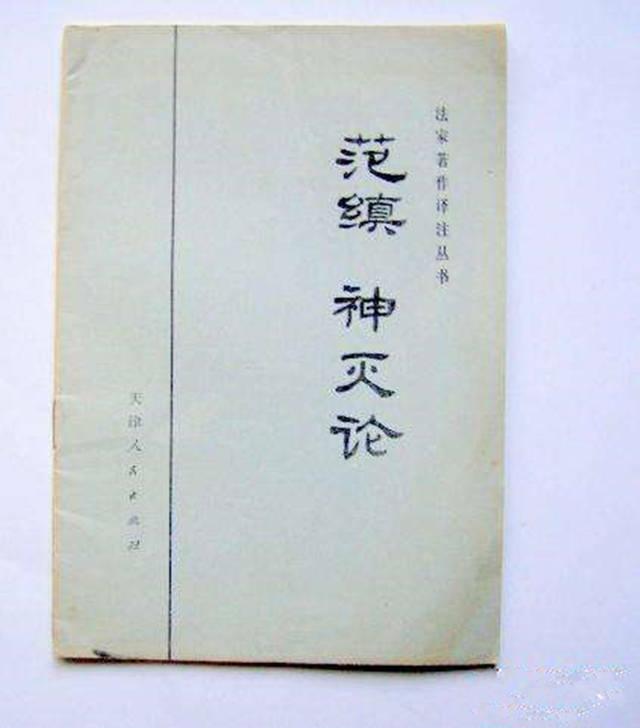 法家著作译注丛书
范缜 神灭论
天津人民出版社